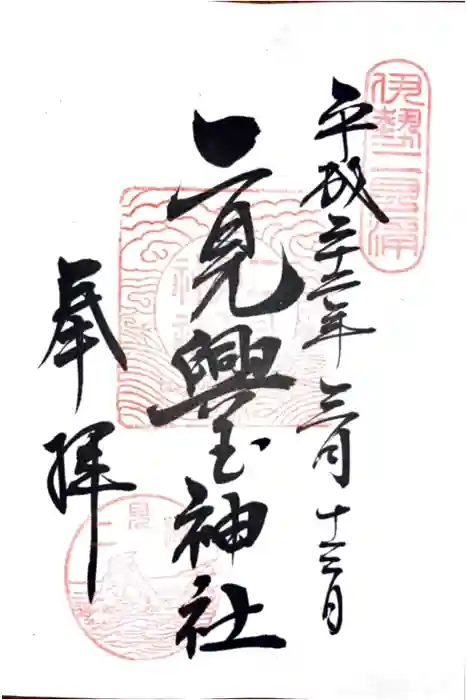 伊勢二見浦
平成二十二年三月十三日
二見興玉神社
奉拝